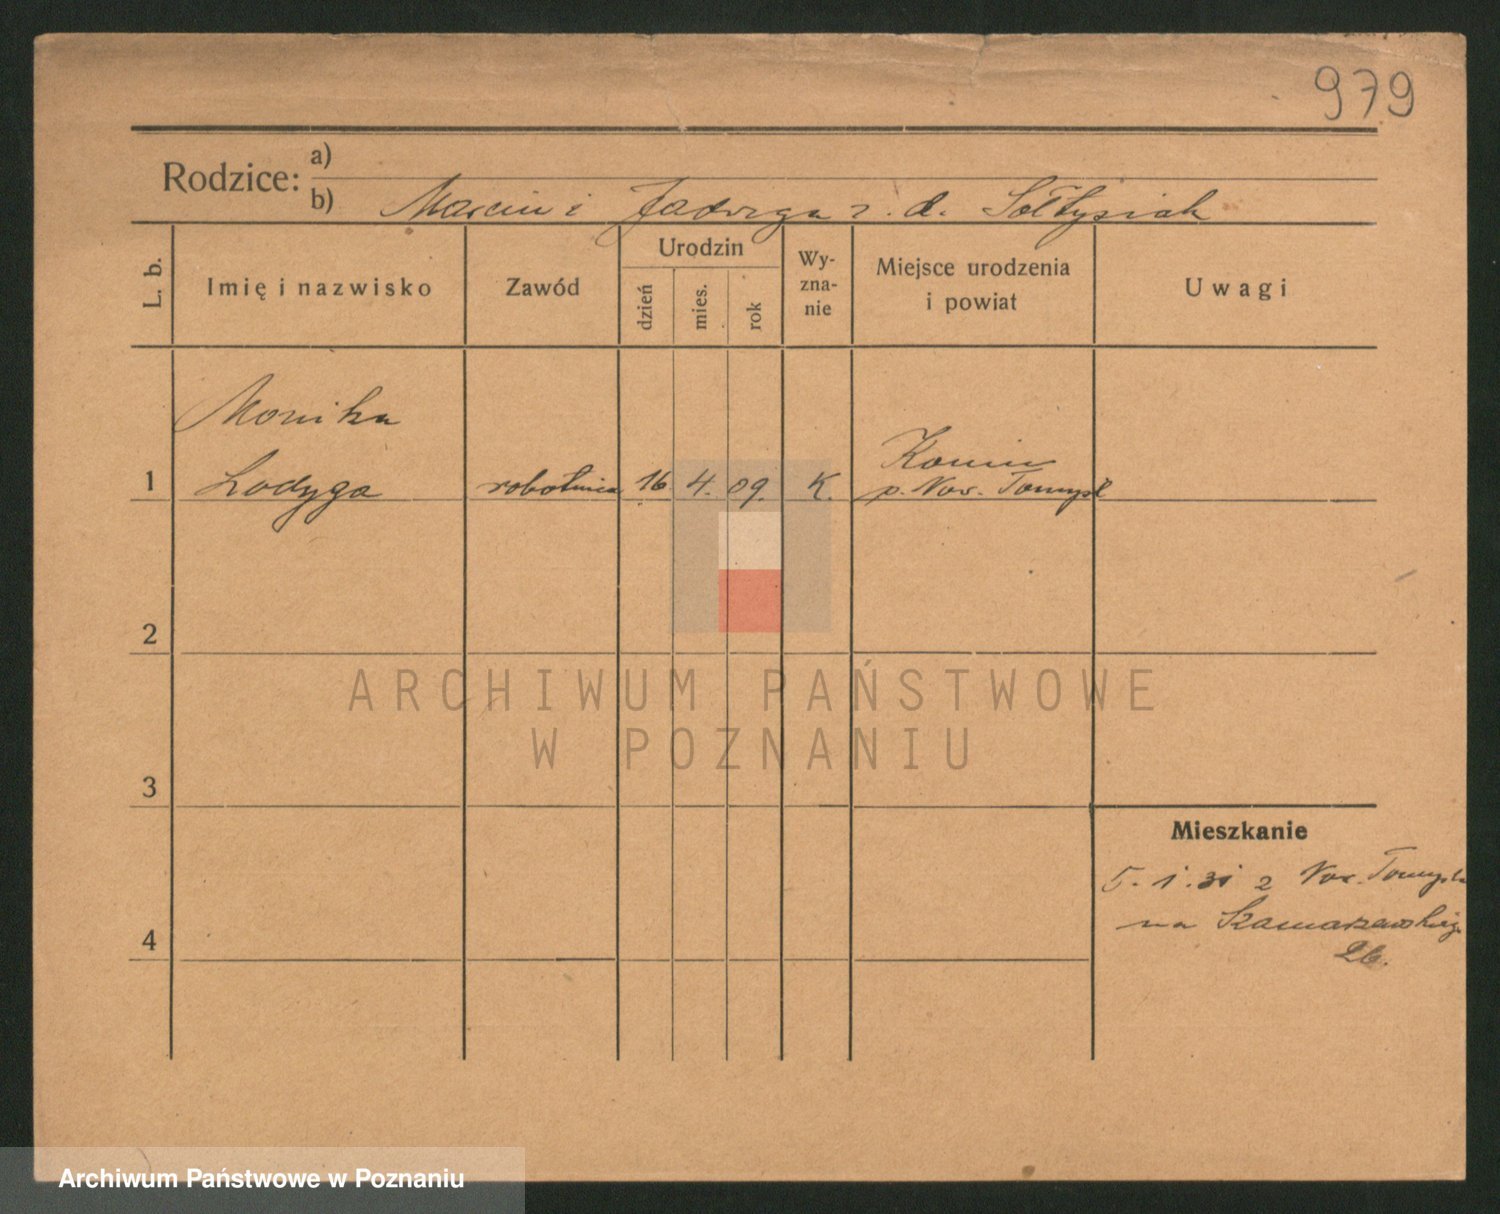 979
Rodzice:
a)
b) Marcin i Jadwiga z. d. Sołtysiak
L. b.
Imię i nazwisko
Zawód
Urodzin
dzień
mies.
rok
Wy-
zna-
nie
Miejsce urodzenia
i powiat
Uwagi
Monika
1 Lodyga robotnica 16 4. 09. K.
Konin
p. Now. Tomyśl
2
ARCHIWUM PAŃSTWOWE
W POZNANIU
3
Mieszkanie
5. 1. 31 z Now. Tomyśla
na
26.
4
Archiwum Państwowe w Poznaniu